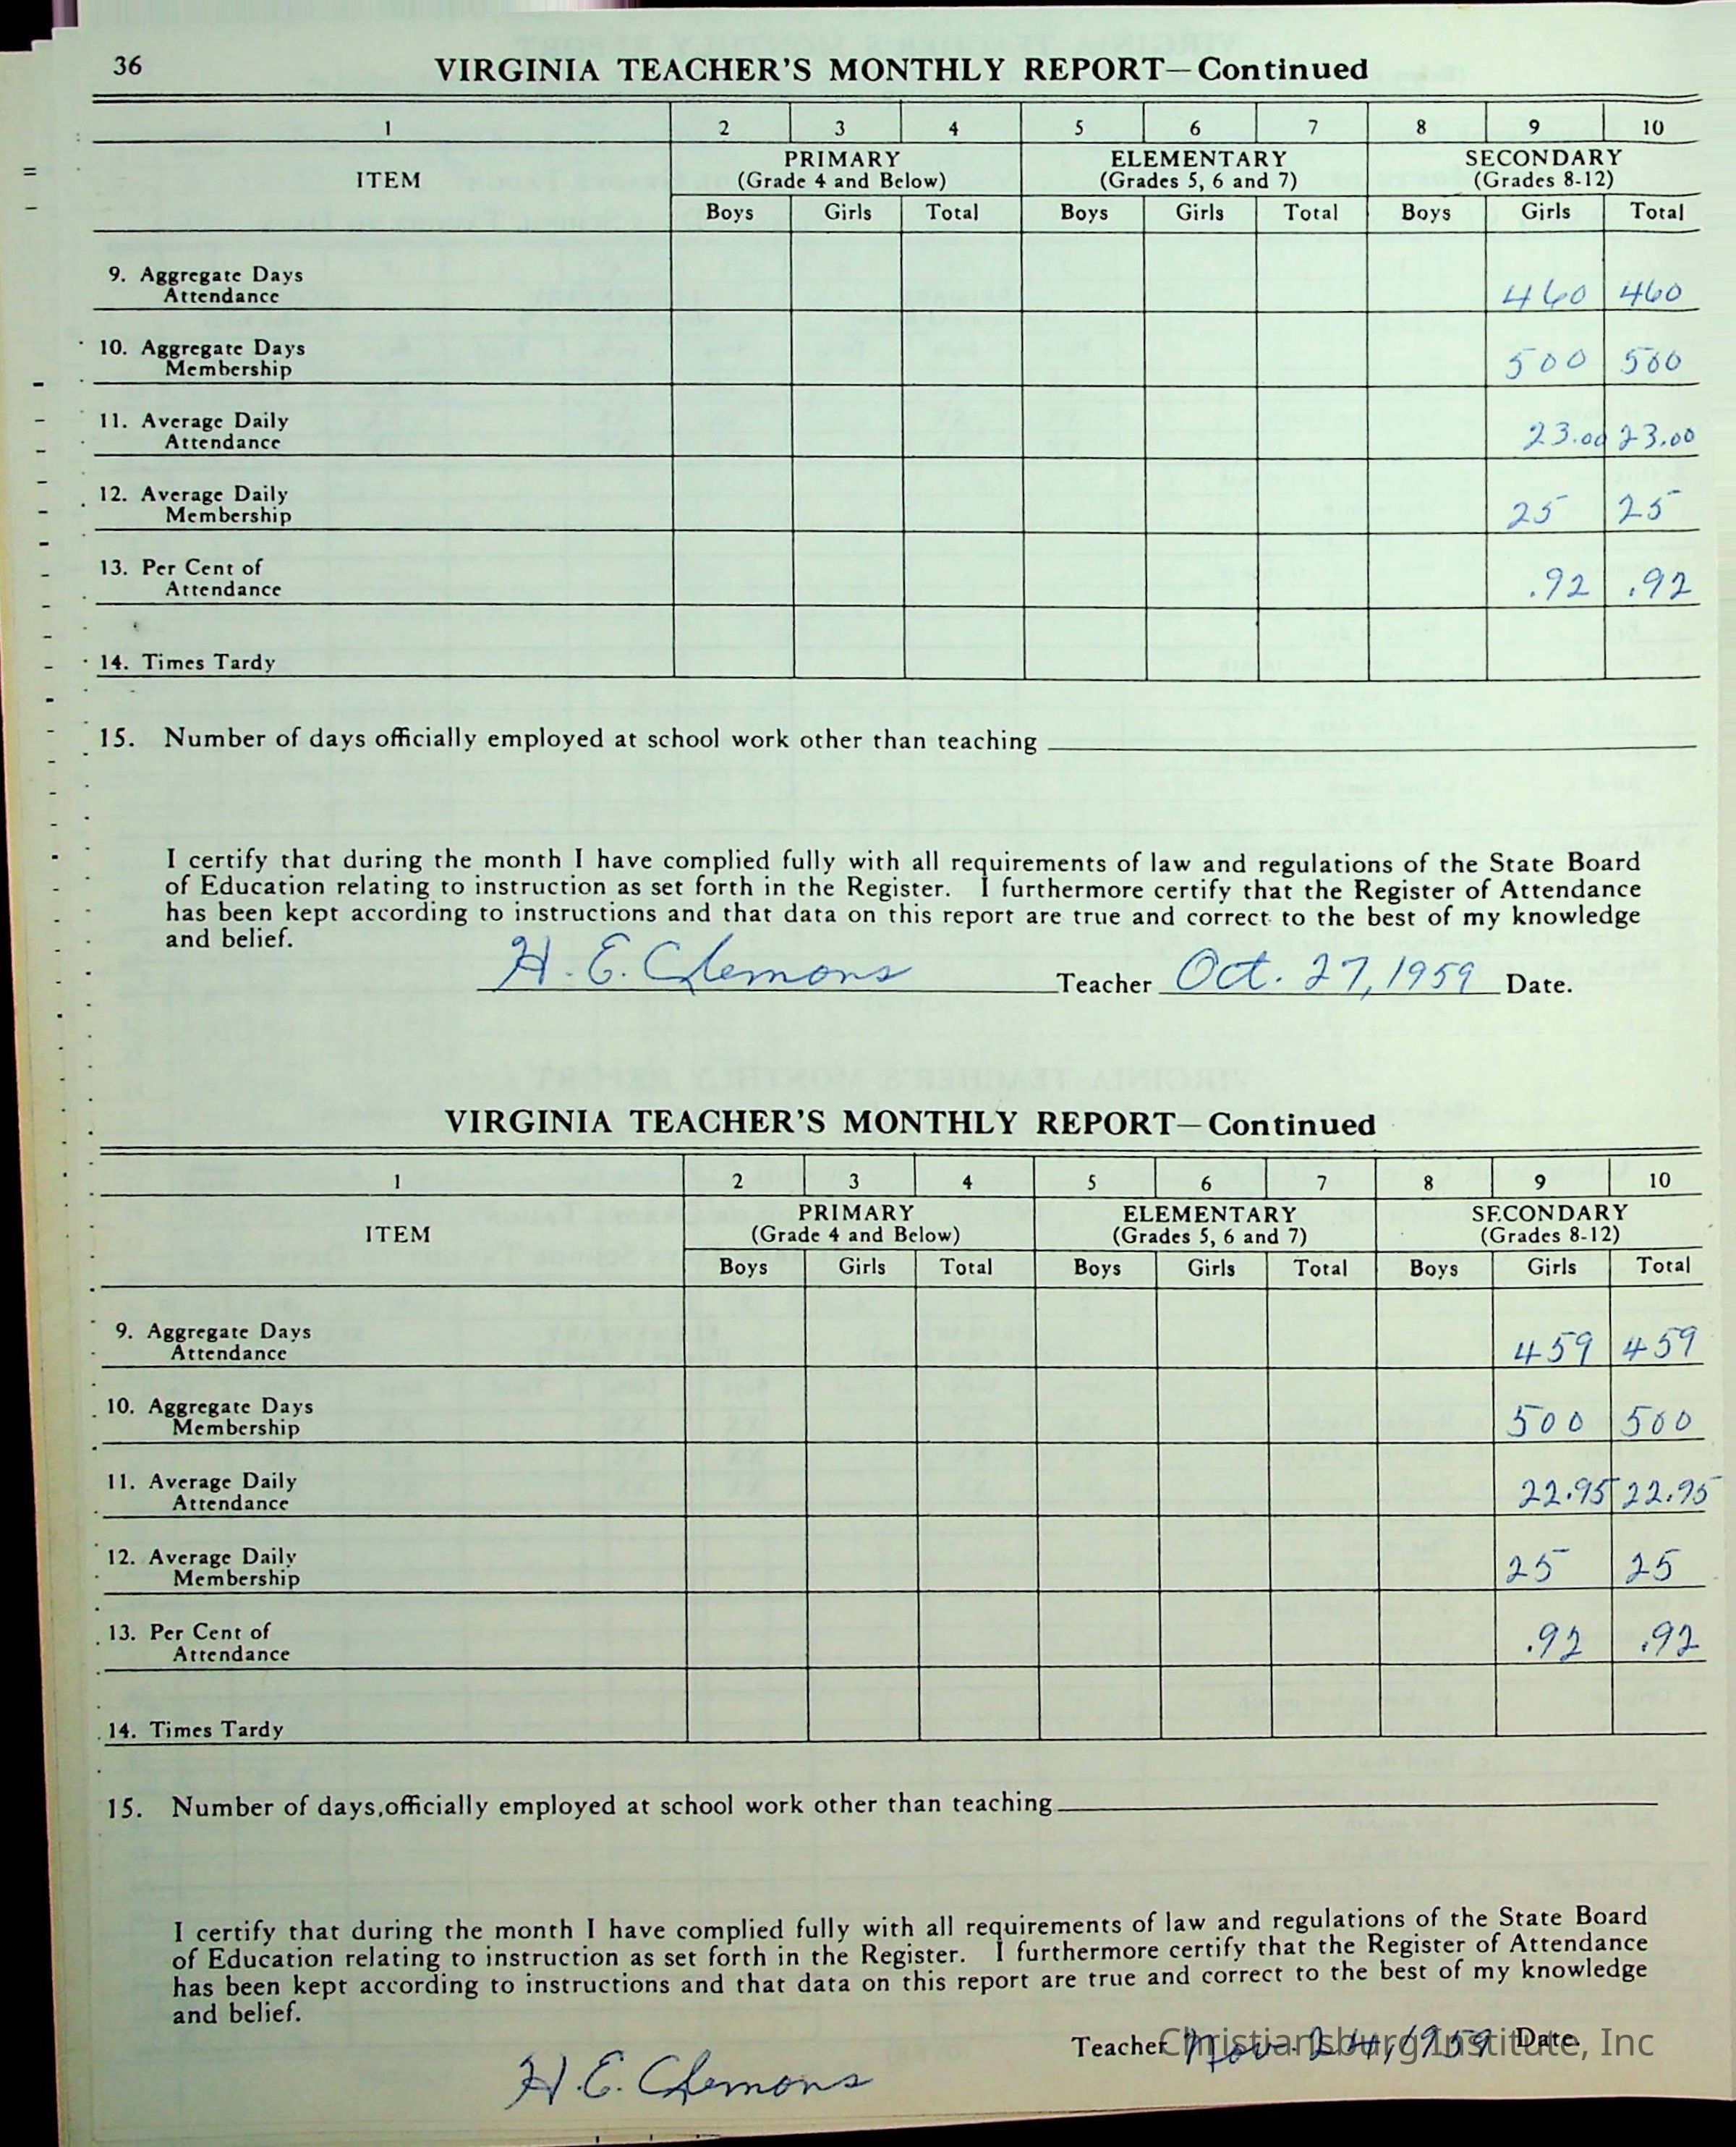 36
VIRGINIA TEACHER'S MONTHLY REPORT—Continued
1 2 3 4 5 6 7 8 9 10
ITEM PRIMARY (Grade 4 and Below) ELEMENTARY (Grades 5, 6 and 7) SECONDARY (Grades 8-12)
Boys Girls Total Boys Girls Total Boys Girls Total
9. Aggregate Days
Attendance 460 460
10. Aggregate Days
Membership 500 500
11. Average Daily
Attendance 23.00 23.00
12. Average Daily
Membership 25 25
13. Per Cent of
Attendance .92 .92
14. Times Tardy
15. Number of days officially employed at school work other than teaching
I certify that during the month I have complied fully with all requirements of law and regulations of the State Board
of Education relating to instruction as set forth in the Register. I furthermore certify that the Register of Attendance
has been kept according to instructions and that data on this report are true and correct to the best of my knowledge
and belief.
H. E. Clemons Teacher Oct. 27, 1959 Date.
VIRGINIA TEACHER'S MONTHLY REPORT—Continued
1 2 3 4 5 6 7 8 9 10
ITEM PRIMARY (Grade 4 and Below) ELEMENTARY (Grades 5, 6 and 7) SECONDARY (Grades 8-12)
Boys Girls Total Boys Girls Total Boys Girls Total
9. Aggregate Days
Attendance 459 459
10. Aggregate Days
Membership 500 500
11. Average Daily
Attendance 22.95 22.95
12. Average Daily
Membership 25 25
13. Per Cent of
Attendance .92 .92
14. Times Tardy
15. Number of days officially employed at school work other than teaching
I certify that during the month I have complied fully with all requirements of law and regulations of the State Board
of Education relating to instruction as set forth in the Register. I furthermore certify that the Register of Attendance
has been kept according to instructions and that data on this report are true and correct to the best of my knowledge
and belief.
Teacher Nov. 24, 1959 Date.
Christiansburg Institute, Inc
H. E. Clemons